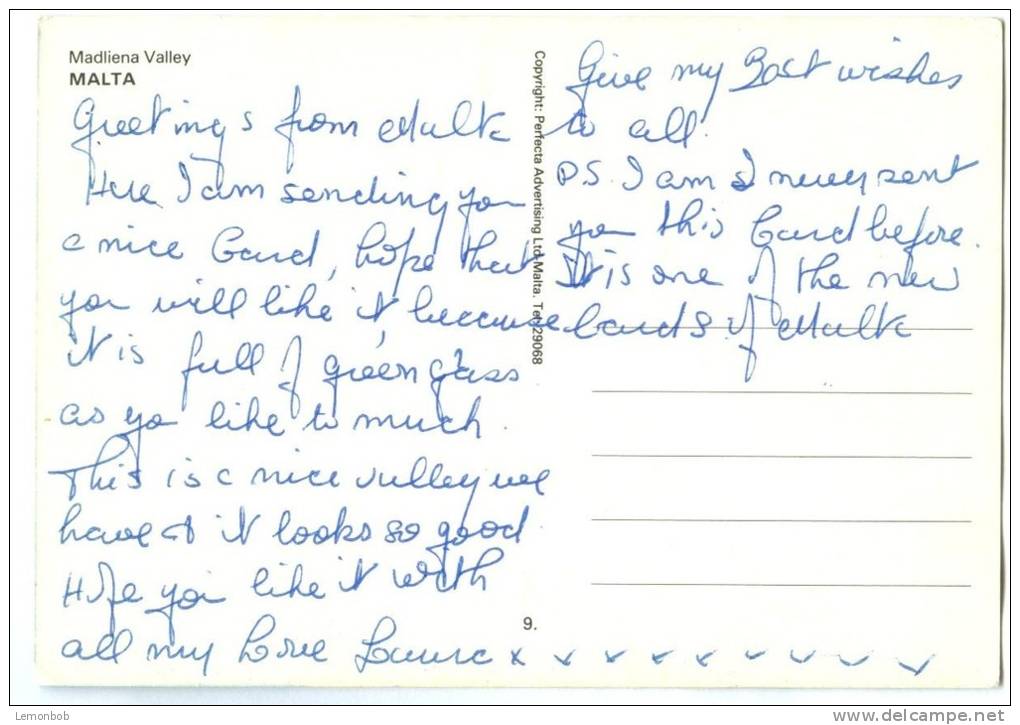 Madliena Valley
MALTA
Greetings from Malta
Here I am sending you
a nice Card, hope that
you will like it, because
it is full of green grass
as yo like to much.
This is a nice valley we
have & it looks so good
Hope you like it with
all my Love Laura x x x x x x x x x
Give my Best wishes
to all.
P.S. I am I never sent
you this Card before.
It is one of the new
Cards of Malta
Copyright: Perfecta Advertising Ltd. Malta. Tel. 29068
9.
Lemonbob
www.delcampe.net